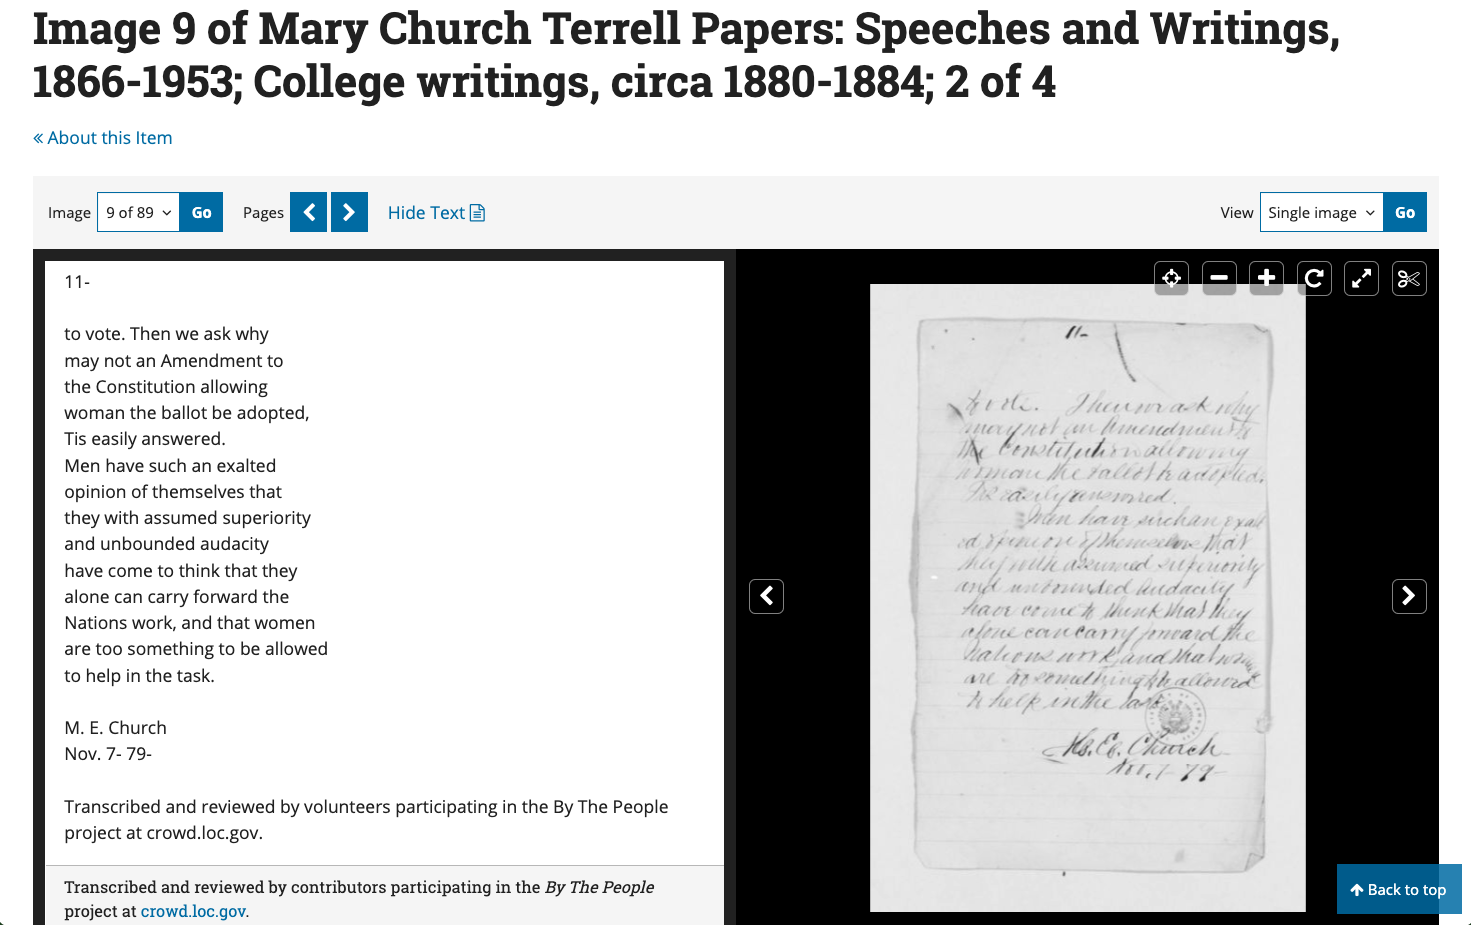 Image 9 of Mary Church Terrell Papers: Speeches and Writings,
1866-1953; College writings, circa 1880-1884; 2 of 4
« About this Item
Image 9 of 89 Go Pages Hide Text View Single image Go
11-
to vote. Then we ask why
may not an Amendment to
the Constitution allowing
woman the ballot be adopted,
Tis easily answered.
Men have such an exalted
opinion of themselves that
they with assumed superiority
and unbounded audacity
have come to think that they
alone can carry forward the
Nations work, and that women
are too something to be allowed
to help in the task.
M. E. Church
Nov. 7- 79-
Transcribed and reviewed by volunteers participating in the By The People
project at crowd.loc.gov.
Transcribed and reviewed by contributors participating in the By The People
project at crowd.loc.gov.
11-
to vote. Then we ask why
may not an Amendment to
the Constitution allowing
woman the ballot be adopted,
Tis easily answered.
Men have such an exalt
ed opinion of themselves that
they with assumed superiority
and unbounded audacity
have come to think that they
alone can carry forward the
Nations work, and that women
are too something to be allowed
to help in the task.
M. E. Church
Nov. 7- 79-
Back to top